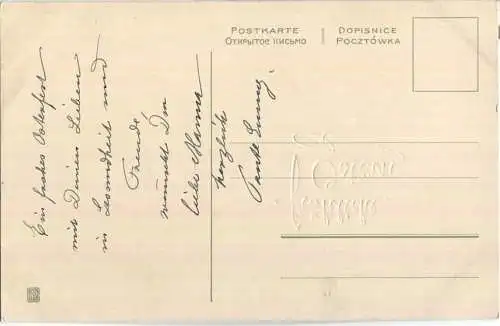 POSTKARTE
ОТКРЫТОЕ ПИСЬМО
DOPISNICE
POCZTÓWKA
Ein frohes Osterfest
mit Deinen Lieben
in Gesundheit und
Freude
wünscht Dir
liebe Manna
herzlich
Tante Emmy.